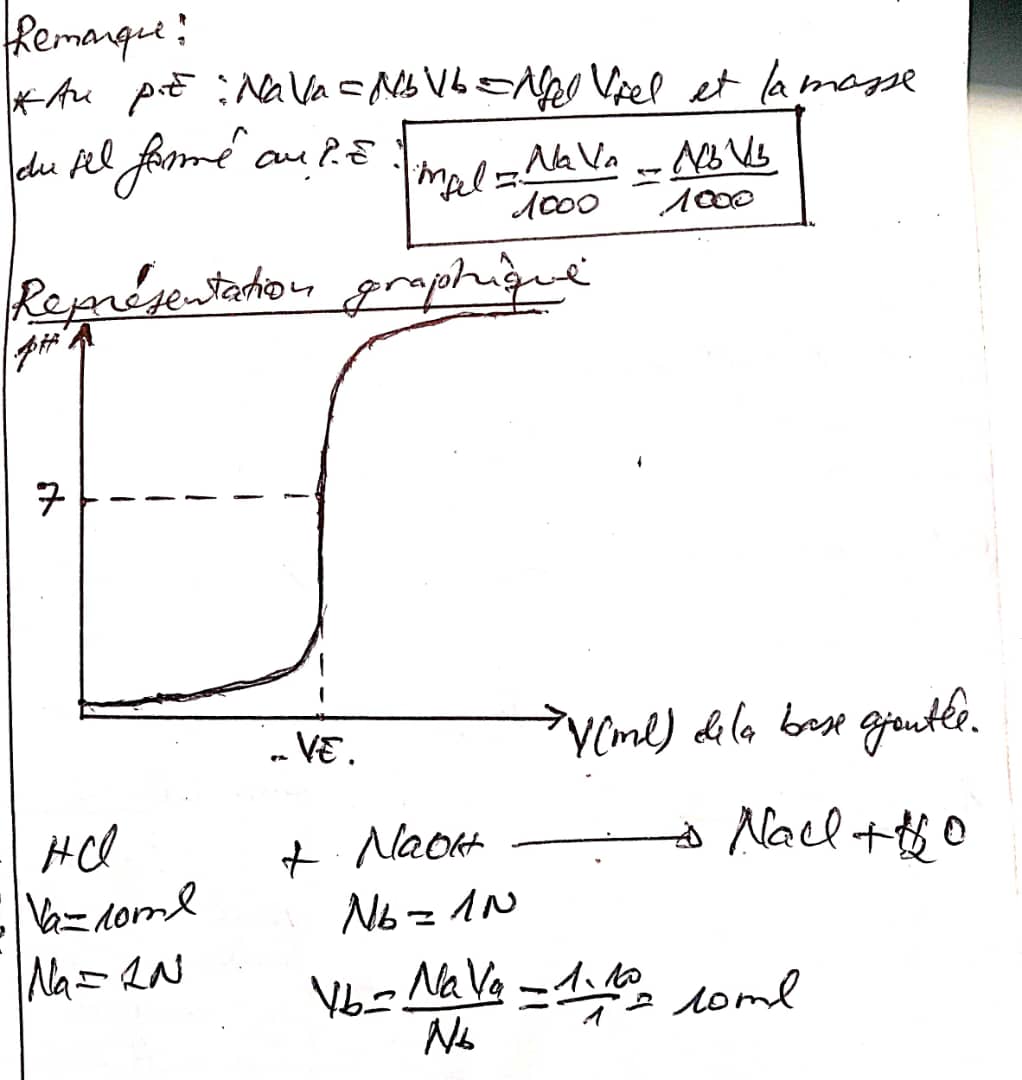 Remarque :
* Au p.E : NaVa = NbVb = Nsel Vsel et la masse
du sel formé au P.E : msel = NaVa/1000 = NbVb/1000
Représentation graphique
pH
7
VE.
V(ml) de la base ajoutée.
HCl + NaOH → NaCl + H2O
Va = 10ml Nb = 1N
Na = 1N Vb = NaVa/Nb = 1.10/1 = 10ml